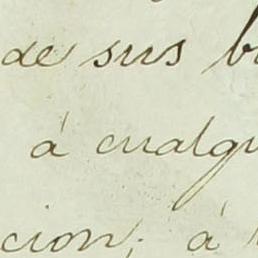 de sus b
á cualqu
cion, á